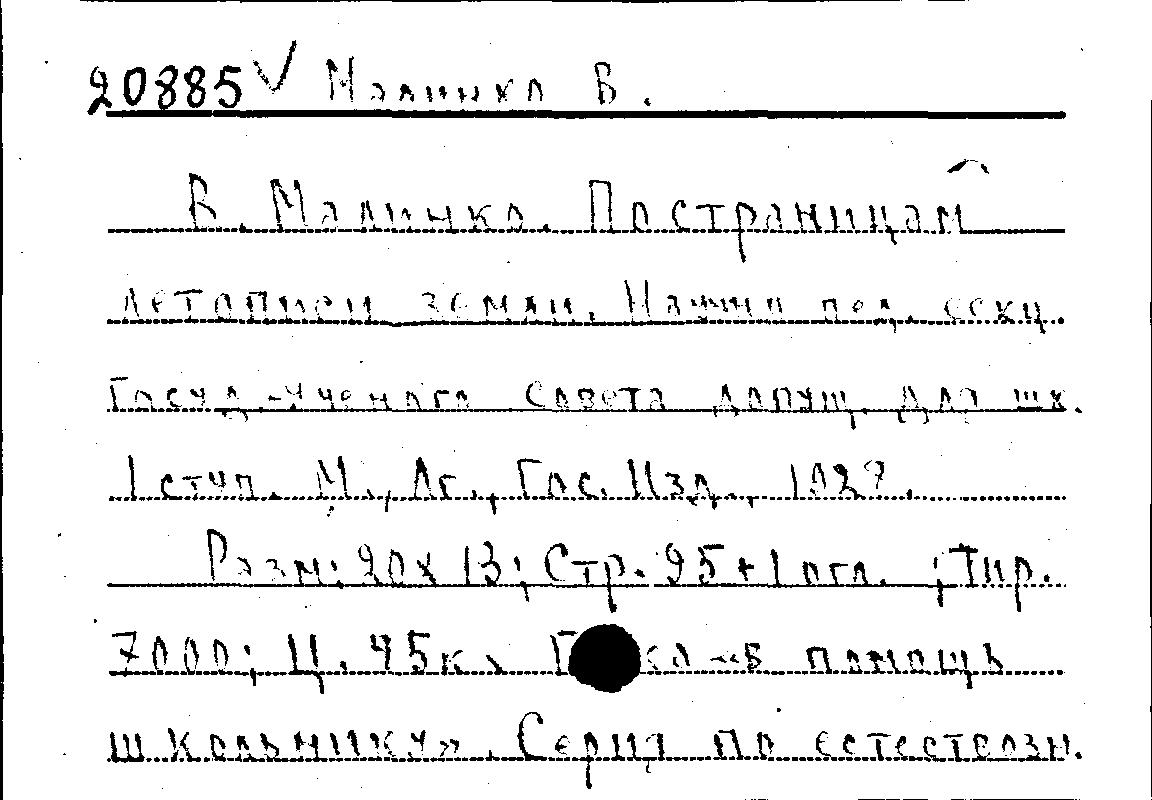 20885 √ Малинко В.
В. Малинко. По страницам
летописи земли. Научно пед. секц.
Госуд. Ученого Совета допущ. для шк.
I ступ. М., Лг., Гос. Изд., 1927.
Разм: 20 х 13; Стр. 95 + 1 огл. ; Тир.
7000; Ц. 45 к. «в помощь
школьнику». Серия по естествозн.